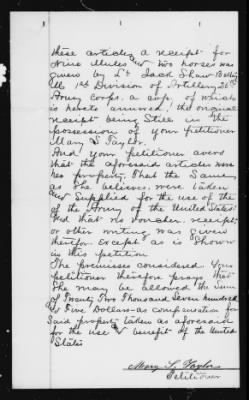 these articles, a receipt for
Nine Mules & two horses was
given by Lt Jack Shaw Batty
M 1st Division of Artillery 25th
Army Corps. a copy of which
is hereto annexed, the original
receipt being Still in the
possession of your petitioner
Mary S Taylor.
And your petitioner avers
that the aforesaid articles were
her property, That the Same
as She believes, were taken
or Supplied for the use of the
of the Army of the United States
And that no voucher, receipt,
or other writing was given
therefor except as is Shown
in this petition
The premises considered Your
petitioner therefore prays that
She may be allowed the Sum
of Twenty Two Thousand Seven hundred
& Five Dollars as compensation for
Said property taken as aforesaid
for the use & benefit of the United
States
Mary S. Taylor
Petitioner